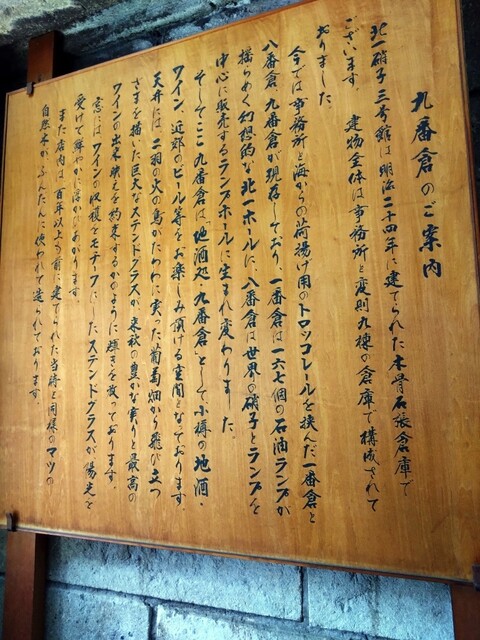 九番倉のご案内
北一硝子三号館は明治二十四年に建てられた木骨石張倉庫で
ございます。建物全体は事務所と変則九棟の倉庫で構成されて
おりました。
今では事務所と海からの荷揚げ用のトロッコレールを挟んだ一番倉と
八番倉、九番倉が現存しており、一番倉は一六七個の石油ランプが
揺らめく幻想的な北一ホールに、八番倉は世界の硝子とランプを
中心に販売するランプホールに生まれ変わりました。
そしてここ九番倉は、地酒処・九番倉として小樽の地酒・
ワイン、近郊のビール等をお楽しみ頂ける空間となっております。
天井には、二羽の火の鳥がたわわに実った葡萄畑から飛び立つ
さまを描いた巨大なステンドグラスが来秋の豊かな実りと最高の
ワインの出来映えを約束するかのように輝きを放っております。
窓にはワインの収穫をモチーフにしたステンドグラスが陽光を
受けて鮮やかに浮かびあがります。
また店内は百年以上も前に建てられた当時と同様のマツの
自然木がふんだんに使われて造られております。